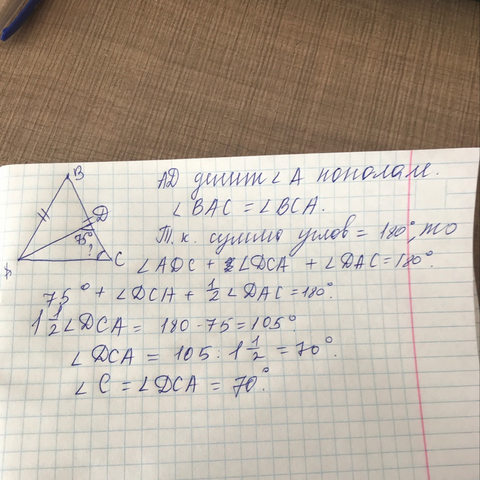 B
D
75°
?
A
C
AD делит ∠ A пополам.
∠ BAC = ∠ BCA.
Т.к. сумма углов = 180°, то
∠ ADC + ∠ DCA + ∠ DAC = 180°.
75° + ∠ DCA + 1/2 ∠ DAC = 180°.
1 1/2 ∠ DCA = 180 - 75 = 105°.
∠ DCA = 105 : 1 1/2 = 70°.
∠ C = ∠ DCA = 70°.